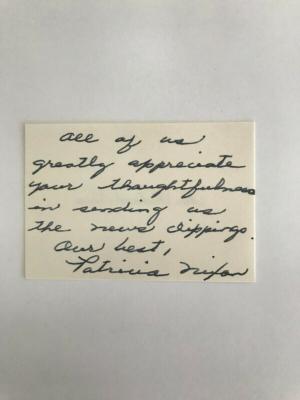 All of us
greatly appreciate
your thoughtfulness
in sending us
the news clippings.
Our best,
Patricia Nixon